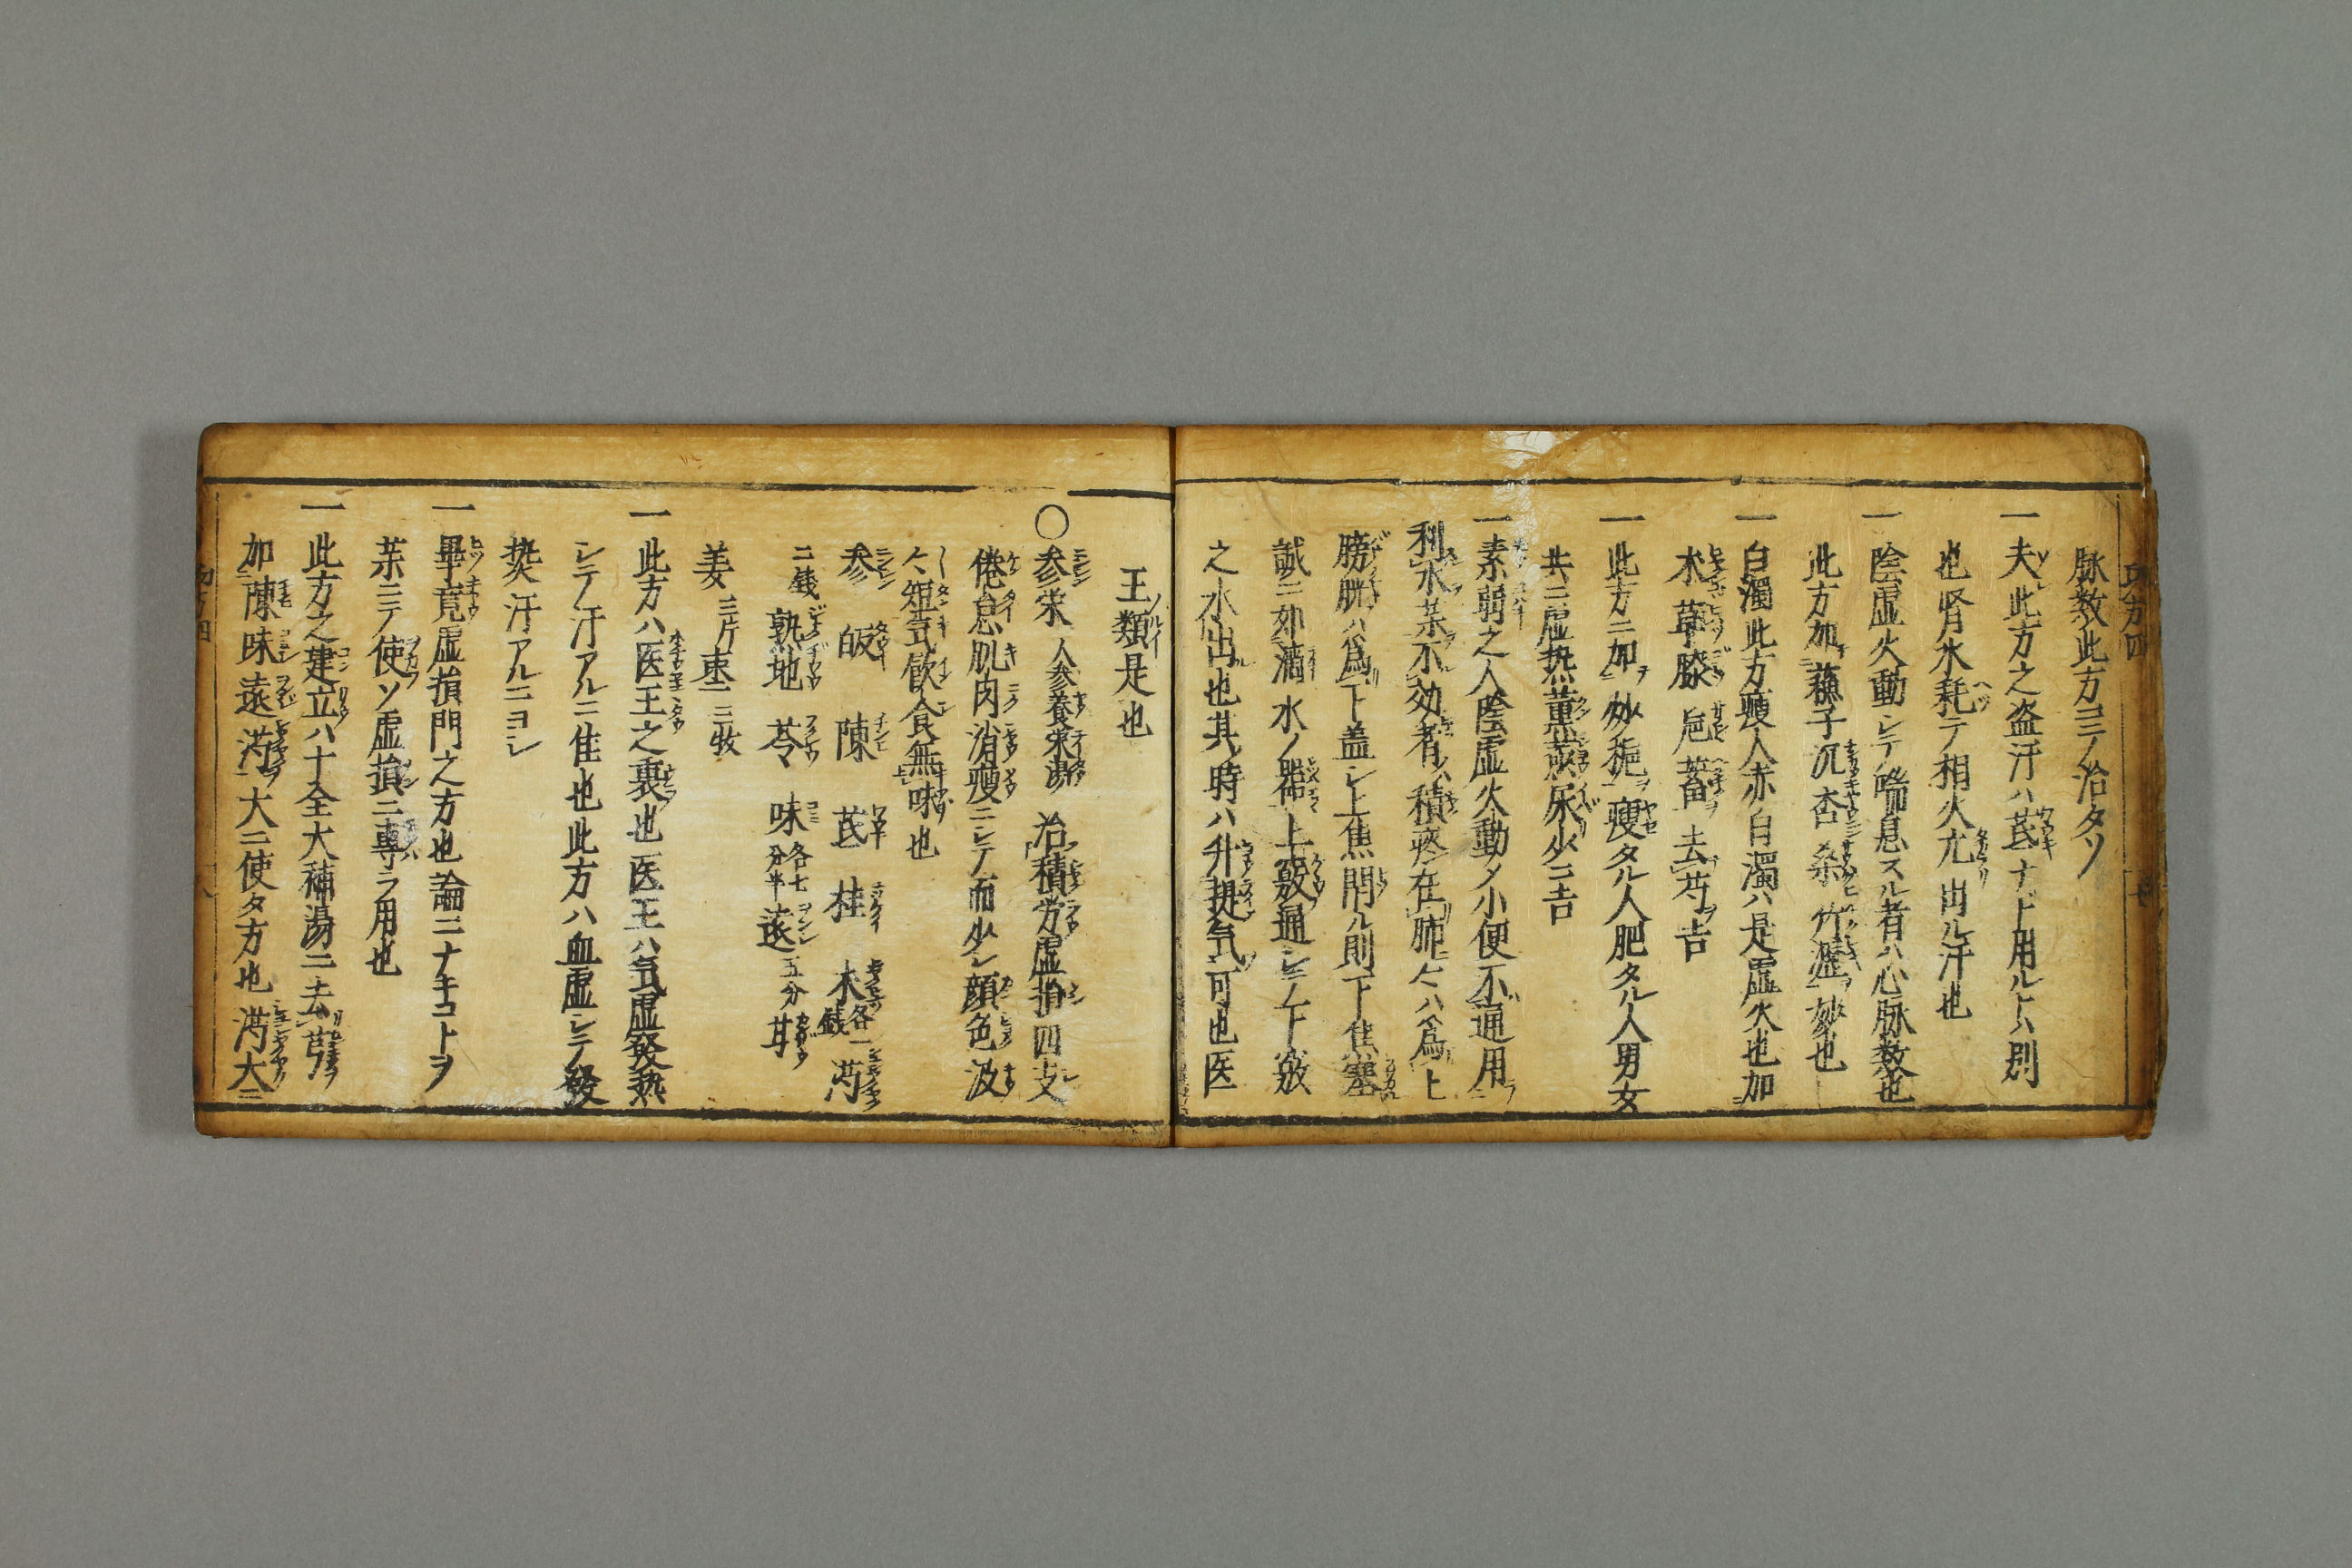 脉数此方ニテ治タソ
一夫此方之盗汗ハ芪ナド用ルトハ別
也腎水耗テ相火尤出ル汗也
一陰虚火動シテ喘息スル者ハ心脉数也
此方加蘓子沉杏桒竹瀝妙也
一白濁此方瘦人赤白濁ハ是虚火也加
木萆膝𢀖蓄去芍吉
一此方ニ加瘦タル人肥タル人男女
共ニ虚热薫蒸尿少ニ吉
一素弱之人陰虚火動メ小便不通用
利水薬不効者ハ積疼在肺ニ人ハ爲上
膀胱ハ爲下盖シ上焦閇ル則下焦塞
誠ニ如滴水ノ器上竅通シテ下竅
之水出ル也其時ハ升提気可也医
王類是也
〇参栄 人参養栄湯 治積労虚損四支
倦怠肌肉消瘦ニシテ而少シ顔色汲
人短気飲食無味也
参 皈 陳 芪 桂 木各一銭 芍
二銭 熟地 苓 味各七分半 遠五分 甘
姜三片 枣二三枚
一此方ハ医王之裏也医王ハ気虚發熱
シテ汗アルニ佳也此方ハ血虚シテ發
热汗アルニヨシ
一畢竟虚損門之方也論ニナキコトヲ
薬ニテ使ソ虚損ニ専ラ用也
一此方之建立ハ十全大補湯ニ去芎
加陳味遠芍大ニ使タ方也芍大ニ